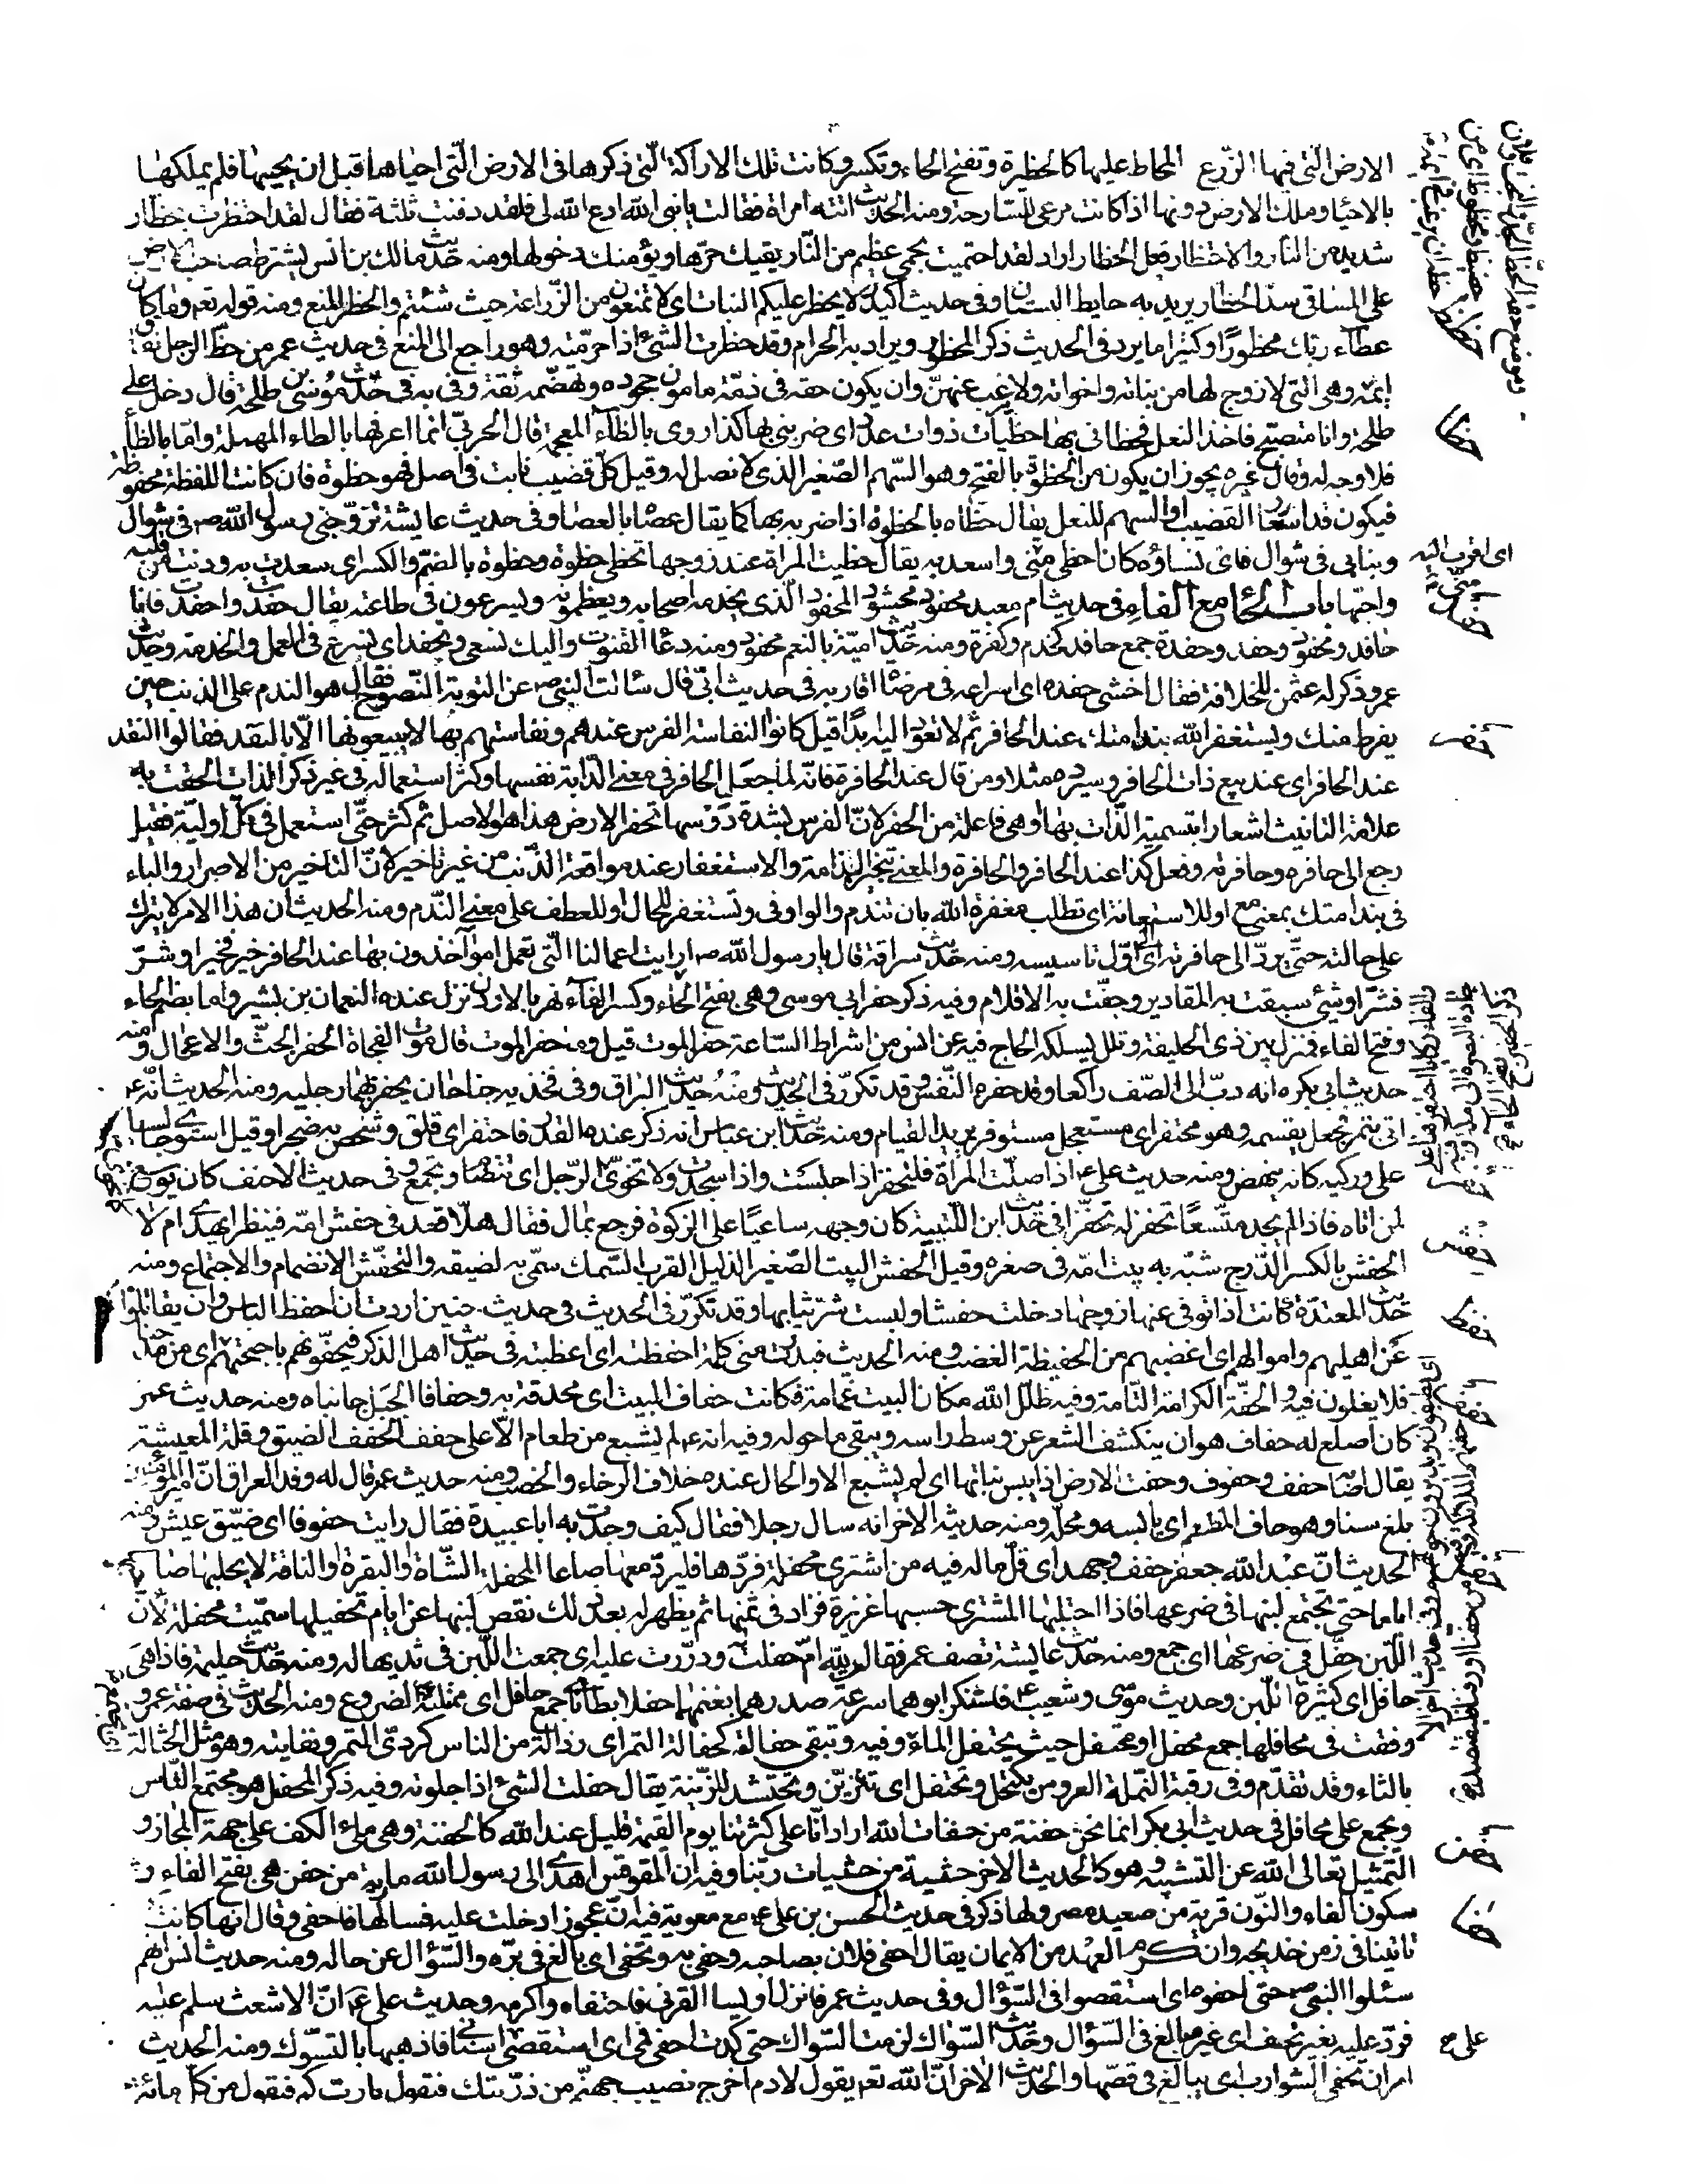 الارض التى فيها الزرع المحاط عليها كالحظيرة وتفتح الحاء وتكسر وكانت تلك الاراكة التى ذكرها فى الارض التى احياها قبل ان يحييها فلم يملكها
بالاحياء وملك الارض دونها اذا كانت مرعى للسارحة ومنه الحديث اتته امراة فقالت يا نبى الله ادع الله لى فلقد دفنت ثلثة فقال لقد احتظرت بحظار
شديد من النار والاحتظار فعل الحظار اراد لقد احتميت بحمى عظيم من النار يقيك حرها ويؤمنك دخولها ومنه حديث مالك بن انس يشترط صاحب الارض
على المساقى سد الحظار يريد به حايط البستان وفى حديث اكيدر لا يحظر عليكم النبات اى لا تمنعون من الزراعة حيث شئتم والحظر المنع ومنه قوله تعه وما كان
عطاء ربك محظورا وكثيرا ما يرد فى الحديث ذكر المحظور ويراد به الحرام وقد حظرت الشئ اذا حرمته وهو راجع الى المنع فى حديث عمر من حظ الرجل نفاق
ايمه وهى التى لا زوج لها من بناته واخواته ولا يرغب عنهن وان يكون حقه فى ذمة مامون جحوده وتهضمه ثقة وفى به فى حديث موسى بن طلحة قال دخل على
طلحة وانا متصبح فاخذ النعل فحظانى بها حظيات ذوات عدد اى ضربنى بها كذا روى بالظاء المعجمة قال الحربى انما اعرفها بالطاء المهملة واما بالظاء
فلا وجه له وقال غيره يجوز ان يكون من الحظوة بالفتح وهو السهم الصغير الذى لا نصل له وقيل كل قضيب نابت فى اصل فهو حظوة فان كانت اللفظة محفوظة
فيكون قد استعار القضيب او السهم للنعل يقال حظاه بالحظوة اذا ضربه بها كما يقال عصاه بالعصا وفى حديث عايشة تزوجنى رسول الله ص فى شوال
وبنا بى فى شوال فاى نساؤه كان احظى منى واسعد به يقال حظيت المراة عند زوجها تحظى حظوة وحظوة بالضم والكسر اى سعدت به ودنت من قلبه
واحبها باب الحاء مع الفاء فى حديث ام معبد محفود محشود المحفود الذى يخدمه اصحابه ويعظمونه ويسرعون فى طاعته يقال حفدت واحفدت فانا
حافد ومحفود وحفد وحفدة جمع حافد كخدم وكفرة ومنه حديث امية بالنعم محفود ومنه دعاء القنوت واليك نسعى ونحفد اى نسرع فى العمل والخدمة وحديث
عمر وذكر له عثمن للخلافة فقال اخشى حفده اى اسراعه فى مرضاة اقاربه فى حديث ابى قال سالت النبى ص عن التوبة النصوح فقال هو الندم على الذنب حين
يفرط منك وتستغفر الله بندامتك عند الحافر ثم لا تعود اليه ابدا قيل كانوا لنفاسة الفرس عندهم ونفاستهم بها لا يبيعونها الا بالنقد فقالوا النقد
عند الحافر اى عند بيع ذات الحافر وسيروه مثلا ومن قال عند الحافرة فانه لما جعل الحافر فى معنى الدابة نفسها وكثر استعماله فى غير ذكر الذات الحقت به
علامة التانيث اشعارا بتسمية الذات بها او هى فاعلة من الحفر لان الفرس بشدة دوسها تحفر الارض هذا هو الاصل ثم كثر حتى استعمل فى كل اولية فقيل
رجع الى حافره وحافرته وفعل كذا عند الحافر والحافرة والمعنى تنجيز الندامة والاستغفار عند مواقعة الذنب من غير تاخير لان التاخير من الاصرار والباء
فى بندامتك بمعنى مع او للاستعانة اى تطلب مغفرة الله بان تندم والواو فى وتستغفر للحال او للعطف على معنى الندم ومنه الحديث ان هذا الامر لا يترك
على حالته حتى يرد الى حافرته اى اول تاسيسه ومنه حديث سراقة قال يا رسول الله ص ارايت اعمالنا التى نعمل امواخذون بها عند الحافر خير فخير او شر
فشر او شئ سبقت به المقادير وجفت به الاقلام وفيه ذكر حفر ابى موسى وهى بفتح الحاء وكسر الفاء نهر بالاردن نزل عنده النعمان بن بشير واما بضم الحاء
وفتح الفاء فمنزل بين ذى الحليفة وملل يسلكه الحاج فيه عن انس من اشراط الساعة حفز الموت قيل وما حفز الموت قال موت الفجاة الحفز الحث والاعجال ومنه
حديث ابى بكره انه دب الى الصف راكعا وقد حفزه النفس وقد تكرر فى الحديث ومنه حديث البراق وفى فخذيه جناحان يحفز بهما رجليه ومنه الحديث انه ع
اتى بتمر فجعل يقسمه وهو محتفز اى مستعجل مستوفز يريد القيام ومنه حديث ابن عباس انه ذكر عنده القدر فاحتفز اى قلق وشخص به ضجرا وقيل استوى جالسا
على وركيه كانه ينهض ومنه حديث على ع اذا صلت المراة فلتحتفز اذا جلست واذا سجدت ولا تخوى الرجل اى تتضام وتجتمع وفى حديث الاحنف كان يوسع
لمن اتاه فاذا لم يجد متسعا تحفز له تحفزا فى حديث ابن اللتبية كان وجهه ساعيا على الزكوة فرجع بمال فقال هلا قعد فى حفش امه فينظر ايهدى ام لا
الحفش بالكسر الدرج شبه به بيت امه فى صغره وقيل الحفش البيت الصغير الذليل القريب السمك سمى به لضيقه والتحفش الانضمام والاجتماع ومنه
حديث المعتدة كانت اذا توفى عنها زوجها دخلت حفشا ولبست شر ثيابها وقد تكرر فى الحديث فى حديث حنين اردت ان احفظ الناس وان يقاتلوا
عن اهليهم واموالهم اى اغضبهم من الحفيظة الغضب ومنه الحديث فبدرت منى كلمة احفظته اى اغضبته فى حديث اهل الذكر فيحفونهم باجنحتهم اى من
فلا يغلون فيه والحفة الكرامة التامة وفيه ظلل الله مكان البيت غمامة فكانت حفاف البيت اى محدقة به وحفافا الجبل جانباه ومنه حديث عمر
كان اصلع له حفاف هو ان ينكشف الشعر عن وسط راسه ويبقى ما حوله وفيه انه ع لم يشبع من طعام الا على حفف الحفف الضيق وقلة المعيشة
يقال اصابه حفف وحفوف وحفت الارض اذا يبس نباتها اى لم يشبع الا والحال عنده خلاف الرخاء والخصب ومنه حديث عمر قال له وفد العراق ان امير المؤمنين
بلغ سنا وهو حاف المطعم اى يابسه وقحله ومنه حديثه الاخر انه سال رجلا فقال كيف وجدت به ابا عبيدة فقال رايت حفوفا اى ضيق عيش ومنه
الحديث ان عبد الله جعفر حفف وجهد اى قل ماله فيه من اشترى محفلة فردها فليرد معها صاعا المحفلة الشاة او البقرة او الناقة لا يحلبها صاحبها
اياما حتى يجتمع لبنها فى ضرعها فاذا احتلبها المشترى حسبها غزيرة فزاد فى ثمنها ثم يظهر له بعد ذلك نقص لبنها عن ايام تحفيلها سميت محفلة لان
اللبن حفل فى ضرعها اى جمع ومنه حديث عايشة تصف عمر فقالت لله ام حفلت ودررت عليه اى جمعت اللبن فى ثديها له ومنه حديث حليمة فاذا هى
حافل اى كثيرة اللبن وحديث موسى وشعيب ع فاستنكر ابوهما سرعة صدرهما بغنمهما حفلا بطانا جمع حافل اى ممتلئة الضروع ومنه الحديث فى صفة عمر
ودفقت فى محافلها جمع محفل او محتفل حيث يحتفل الماء وفيه وتبقى حفالة كحفالة التمر اى رذالة من الناس كردى التمر ونفايته وهو مثل الحثالة
بالثاء وقد تقدم وفى رقية النملة العروس تكتحل وتحتفل اى تتزين وتحتشد للزينة يقال حفلت الشئ اذا جلوته وفيه ذكر المحفل هو مجتمع الناس
ويجمع على محافل فى حديث ابى بكر انما نحن حفنة من حفنات الله اراد انا على كثرتنا يوم القيمة قليل عند الله كالحفنة وهى ملء الكف على جهة المجاز و
التمثيل تعالى الله عن التشبيه وهو كالحديث الاخر حثية من حثيات ربنا وفيه ان المقوقس اهدى الى رسول الله مارية من حفن هى بفتح الحاء و
سكون الفاء والنون قرية من صعيد مصر ولها ذكر فى حديث الحسن بن على ع مع معوية فيه ان عجوزا دخلت عليه فسالها فاحفى وقال انها كانت
تاتينا فى زمن خديجة وان كرم العهد من الايمان يقال احفى فلان بصاحبه وحفى به وتحفى اى بالغ فى بره والسؤال عن حاله ومنه حديث انس انهم
سئلوا النبى ص حتى احفوه اى استقصوا فى السؤال وفى حديث عمر فانزل اويسا القرنى فاحتفاه واكرمه وحديث على ع ان الاشعث سلم عليه
فرد عليه بغير تحف اى غير مبالغ فى السؤال وحديث السواك لزمت السواك حتى كدت احفى فمى اى استقصى اسنانى فاذهبها بالتسوك ومنه الحديث
امر ان تحفى الشوارب اى يبالغ فى قصها والحديث الاخر ان الله تعه يقول لادم اخرج نصيب جهنم من ذريتك فيقول يا رب كم فيقول من كل مائة
حظظ
حظا
اى اقرب اليه منى
حفد
حفر
حفز
حفش
حفظ
حفف
حفل
حفن
حفا